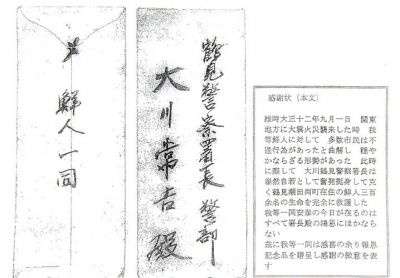 鮮人一同
鶴見警察署長 警部
大川常吉殿
感謝状（本文）
維時大正十二年九月一日　関東
地方に大震火災襲来した時　我
等鮮人に対して　多数市民は不
逞行為があったと曲解し　穏や
かならざる形勢があった　此時
に際して　大川鶴見警察署長は
泰然自若として奮発挺身して克
く鶴見潮田両町在住の鮮人三百
余名の生命を完全に救護した
我等一同安泰の今日が在るのは
すべて署長殿の鴻恩にほかなら
ない
茲に我等一同は感喜の余り報恩
記念品を贈呈し感謝の微意を表
す